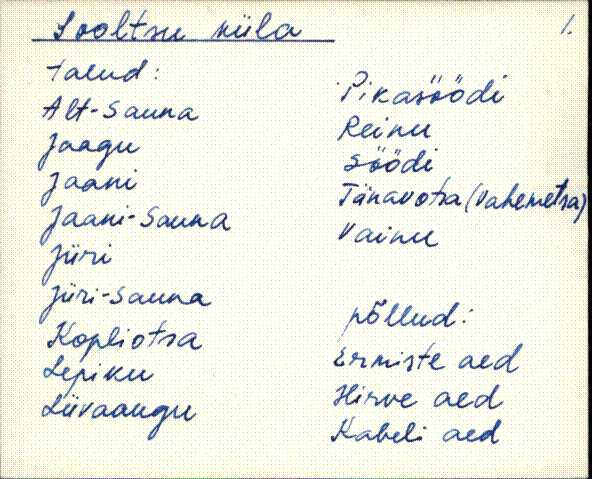 Sooltsu küla
1.
talud:
Alt-Sauna
Jaagu
Jaani
Jaani-Sauna
Jüri
Jüri-Sauna
Kopliotsa
Lepiku
Liivaaugu
Pikasöödi
Reinu
Söödi
Tänavotsa (Vahemetsa)
Vainu
põllud:
Ermiste aed
Hirve aed
Kabeli aed